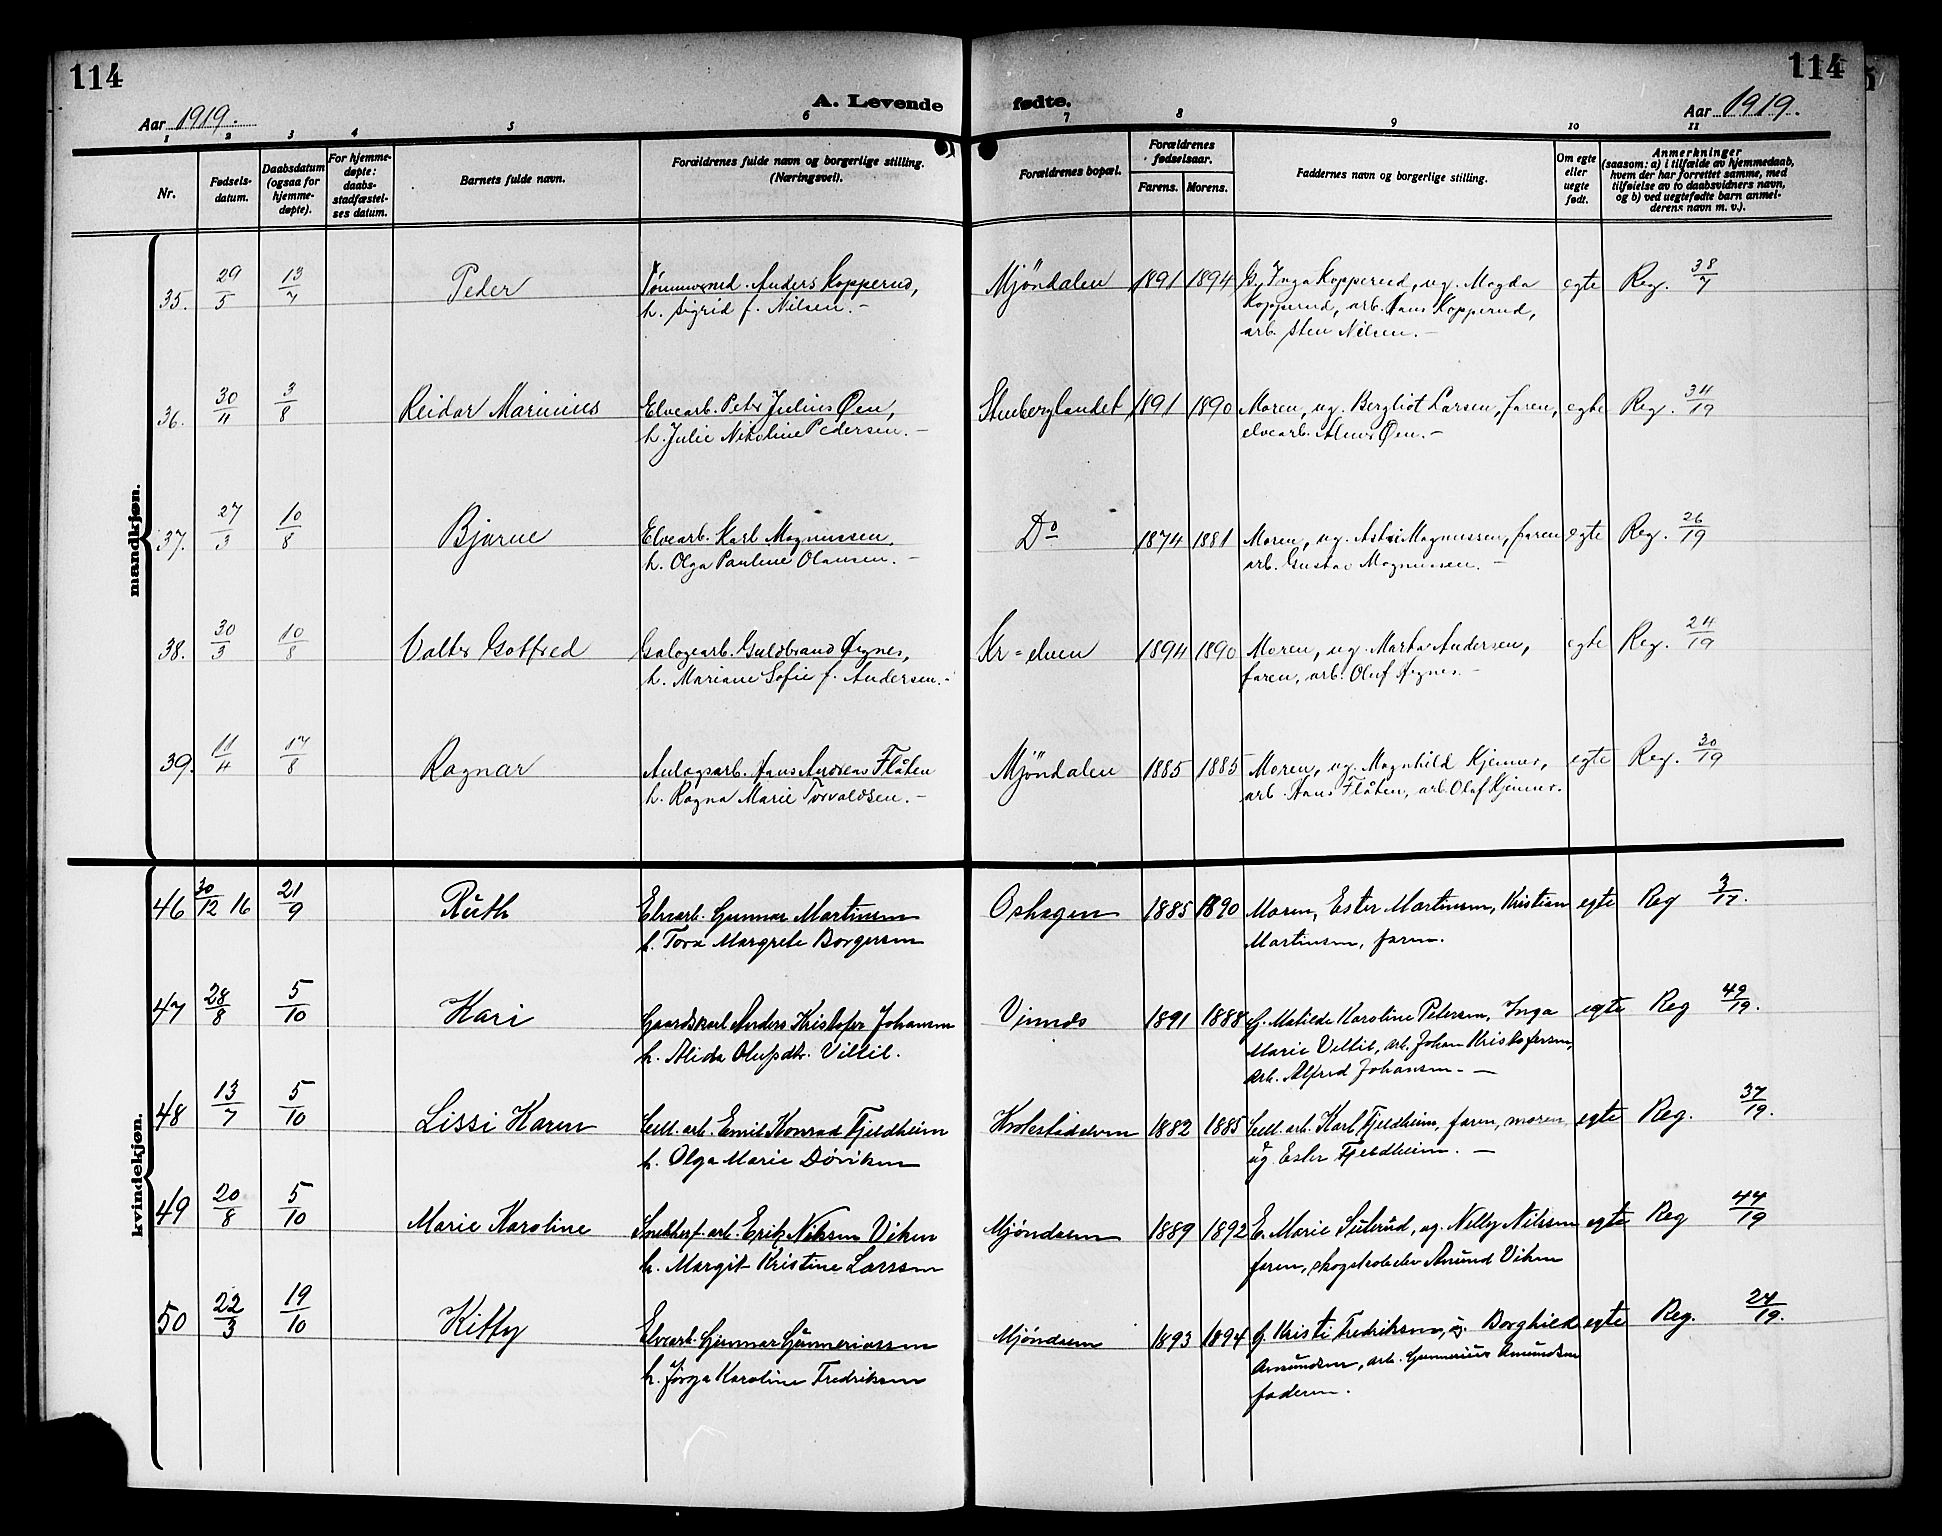 114
114
A. Levende fødte.
Aar 1919.
Aar 1919.
1 2 3 4 5 6 7 8 9 10 11
Nr.
Fødsels-
datum.
Daabsdatum
(ogsaa for
hjemme-
døpte).
For hjemme-
døpte:
daabs-
stadfæstel-
ses datum.
Barnets fulde navn.
Forældrenes fulde navn og borgerlige stilling.
(Næringsvei).
Forældrenes bopæl.
Forældrenes
fødselsaar.
Farens. Morens.
Faddernes navn og borgerlige stilling.
Om egte
eller
uegte
født.
Anmerkninger
(saasom: a) i tilfælde av hjemmedaab,
hvem der har forrettet samme, med
tilføielse av to daabsvidners navn,
og b) ved uegtefødte barn anmel-
derens navn m. v.).
mandkjøn.
35. 29/5 13/7 Peder Anders Kopperud, Mjöndalen 1891 1894 G. Inga Kopperud, ug. Magda egte Reg. 38/7
h. Sigrid f. Nilsen. - Kopperud, arb. Hans Kopperud,
arb. Sten Nilsen. -
36. 30/4 3/8 Reidar Marinius Elvearb. Peter Julius Øen, Stenberglandet 1891 1890 Moren, ug. Bergliot Larsen, faren, egte Reg. 34/19
h. Julie Nikoline Pedersen. - elvearb. Øen. -
37. 27/3 10/8 Bjarne Elvearb. Karl Magnussen, Do 1874 1881 Moren, ug. Magnussen, faren egte Reg. 26/19
h. Olga Pauline Olausen. - arb. Gustav Magnussen. -
38. 30/3 10/8 Valter Gotfred Galogearb. Guldbrand Øygnes, Kr-elven 1894 1890 Moren, ug. Marta Andersen, egte Reg. 24/19
h. Mariane Sofie f. Andersen. - faren, arb. Oluf Øygnes. -
39. 11/4 17/8 Ragnar Anlægsarb. Hans Andreas Flåten Mjöndalen 1885 1885 Moren, ug. Magnhild Kjenner, egte Reg. 30/19
h. Ragna Marie Torvaldsen. - arb. Hans Flåten, arb. Olaf Kjenner.
kvindekjøn.
46 30/12 16 21/9 Ruth Elvearb. Gunnar Martinsen Oshagen 1885 1890 Moren, Ester Martinsen, Kristian egte Reg 3/17.
h. Tora Margrete Borgersen Martinsen, faren.
47 28/8 5/10 Kari Gaardskarl Anders Kristofer Johansen Vinnes 1891 1888 G. Matilde Karoline Petersen, Inga egte Reg 49/19.
h. Alida Olufsdtr. Viltil. Marie Viltil, arb. Johan Kristofersen,
arb. Alfred Johansen. -
48 13/7 5/10 Lissi Karen Cell. arb. Emil Konrad Fjeldheim Krokstadelven 1882 1885 Cell. arb. Karl Fjeldheim, faren, moren, egte Reg. 37/19.
h. Olga Marie Döviken ug Ester Fjeldheim. -
49 20/8 5/10 Marie Karoline arb. Erik Nilsen Viken Mjöndalen 1889 1892 E. Marie Sulerud, ug. Nelly Nilssen egte Reg 44/19
h. Margit Kristine Larssen faren, skogskoleelev Amund Viken
50 22/3 19/10 Kitty Elvearb. Gunnar Gunneriussen Mjöndalen 1893 1894 G. Kristi Fredriksen, ug. Borghild egte Reg. 24/19.
h. Karoline Fredriksen Amundsen, arb. Gunnerius Amundsen
faderen.